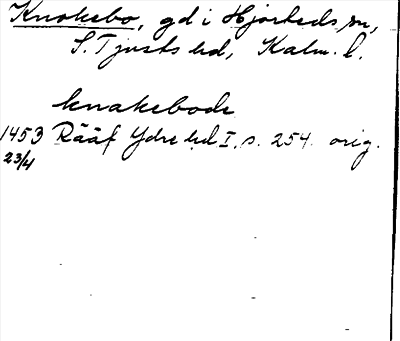 Knakebo, gd i Hjorteds sn,
S. Tjusts hd, Kalm. l.
knakebode
1453 Rääf Ydre hd I, s. 254. orig.
23/4